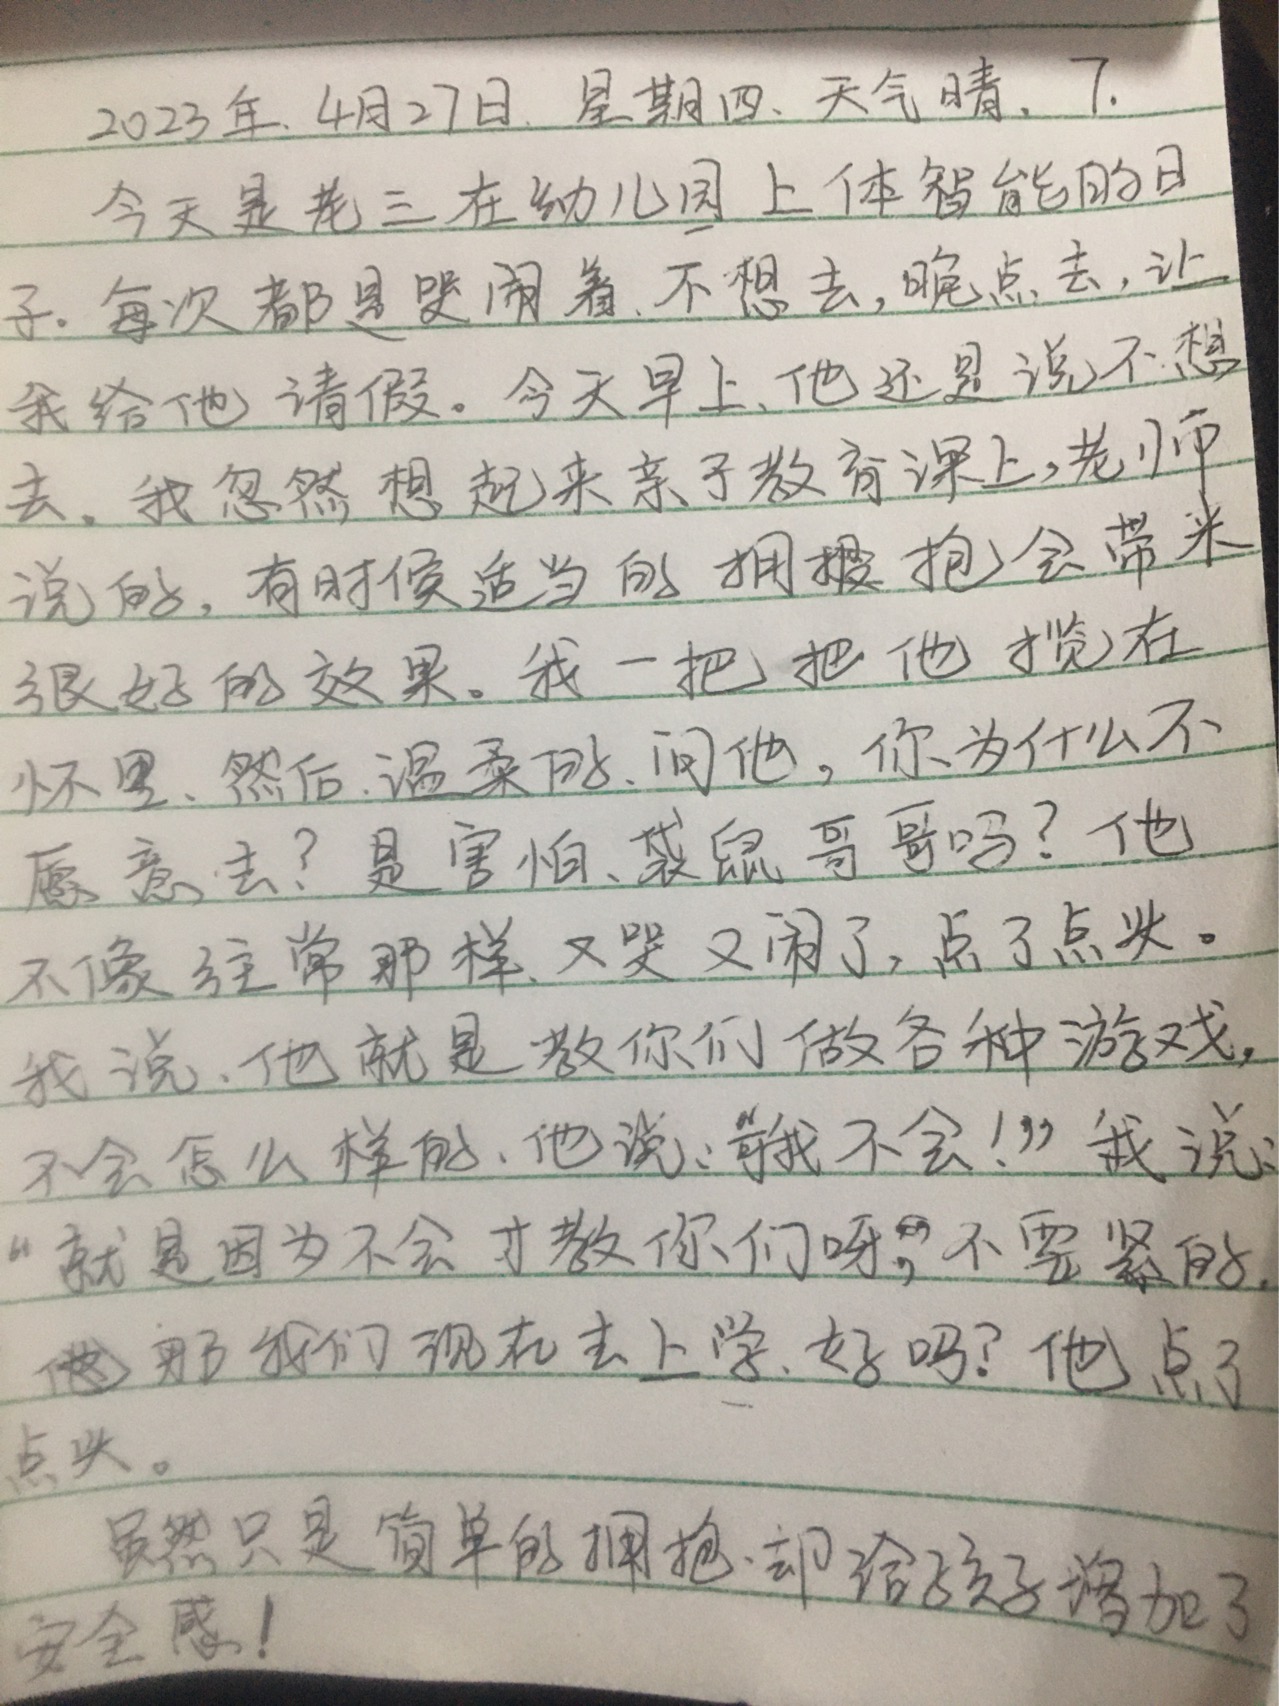 2023年、4月27日、星期四、天气晴、7.
今天是老三在幼儿园上体智能的日
子。每次都是哭闹着、不想去,晚点去,让
我给他请假。今天早上、他还是说不想
去。我忽然想起来亲子教育课上,老师
说的,有时候适当的拥抱会带来
很好的效果。我一把把他揽在
怀里、然后、温柔的、问他,你为什么不
愿意去?是害怕、袋鼠哥哥吗?他
不像往常那样、又哭又闹了,点了点头。
我说、他就是教你们做各种游戏,
不会怎么样的、他说:“我不会!”我说:
“就是因为不会才教你们呀”,不要紧的.
那我们现在去上学、好吗?他点了
点头。
虽然只是简单的拥抱、却给孩子增加了
安全感!